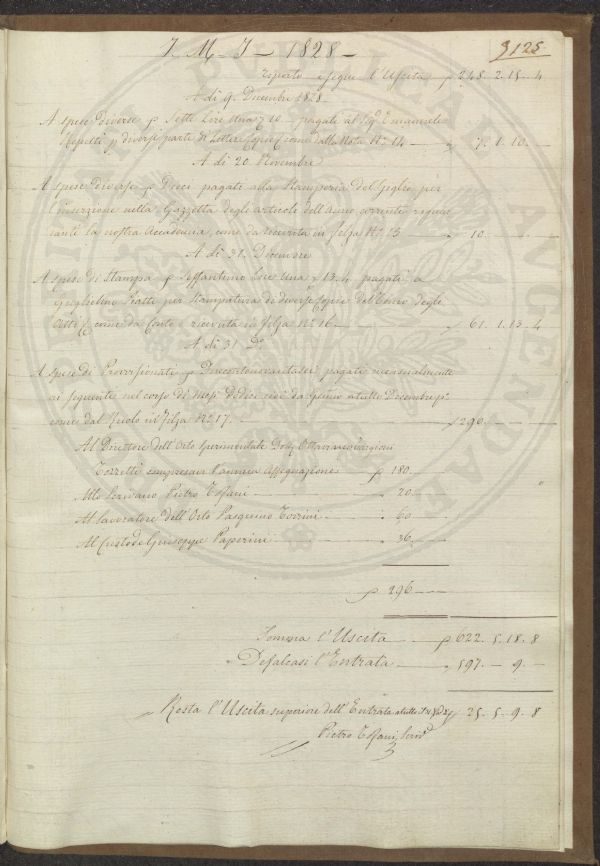 I. M. I. — 1828 —
3125
riporto e segue l'Uscita p 248. 2. 15. 4
A dì 9. Decembre 1828
A spese diverse p Sette Lire Una 10. — pagate al Sig. Emanuele
Repetti p diverse parte di Lettere come dalla Nota N.° 14 — 7. 1. 10. —
A dì 20. Novembre
A spese diverse p Dieci pagate alla Stamperia del Giglio per
l'inserzione nella Gazzetta degli articoli dell'anno corrente riguar
danti la nostra Accademia, come da ricevuta in filza N.° 15 — 10. —
A dì 31. Decembre
A spese di Stampa p Sessantuno Lire Una 13. 4 pagati a
Guglielmo Piatti per Stampatura di diverse copie degli
Atti come da Conto e ricevuta in filza N.° 16. — 61. 1. 13. 4
A dì 31 D.°
A spese di Provvisionati p Dugentonovantasei pagati mensualmente
ai seguenti nel corso di mesi dodici cioè da Gennio a tutto Decembre p.
come dal Ruolo in filza N.° 17. — 296. —
Al Direttore dell'Orto Sperimentale Dott. Ottaviano Targioni
Tozzetti compresavi l'annua Assegnazione — p 180. —
Allo Scrivano Pietro Tofani — 20. —
Al Lavoratore dell'Orto Pasquino Torrini — 60 —
Al Custode Giuseppe Paperini — 36. —
p 296 —
Somma l'Uscita — p 622. 5. 18. 8
Defalcasi l'Entrata — 597. — 9. —
Resta l'Uscita superiore dell'Entrata a tutto p 25. 5. 9. 8
Pietro Tofani Scriv.